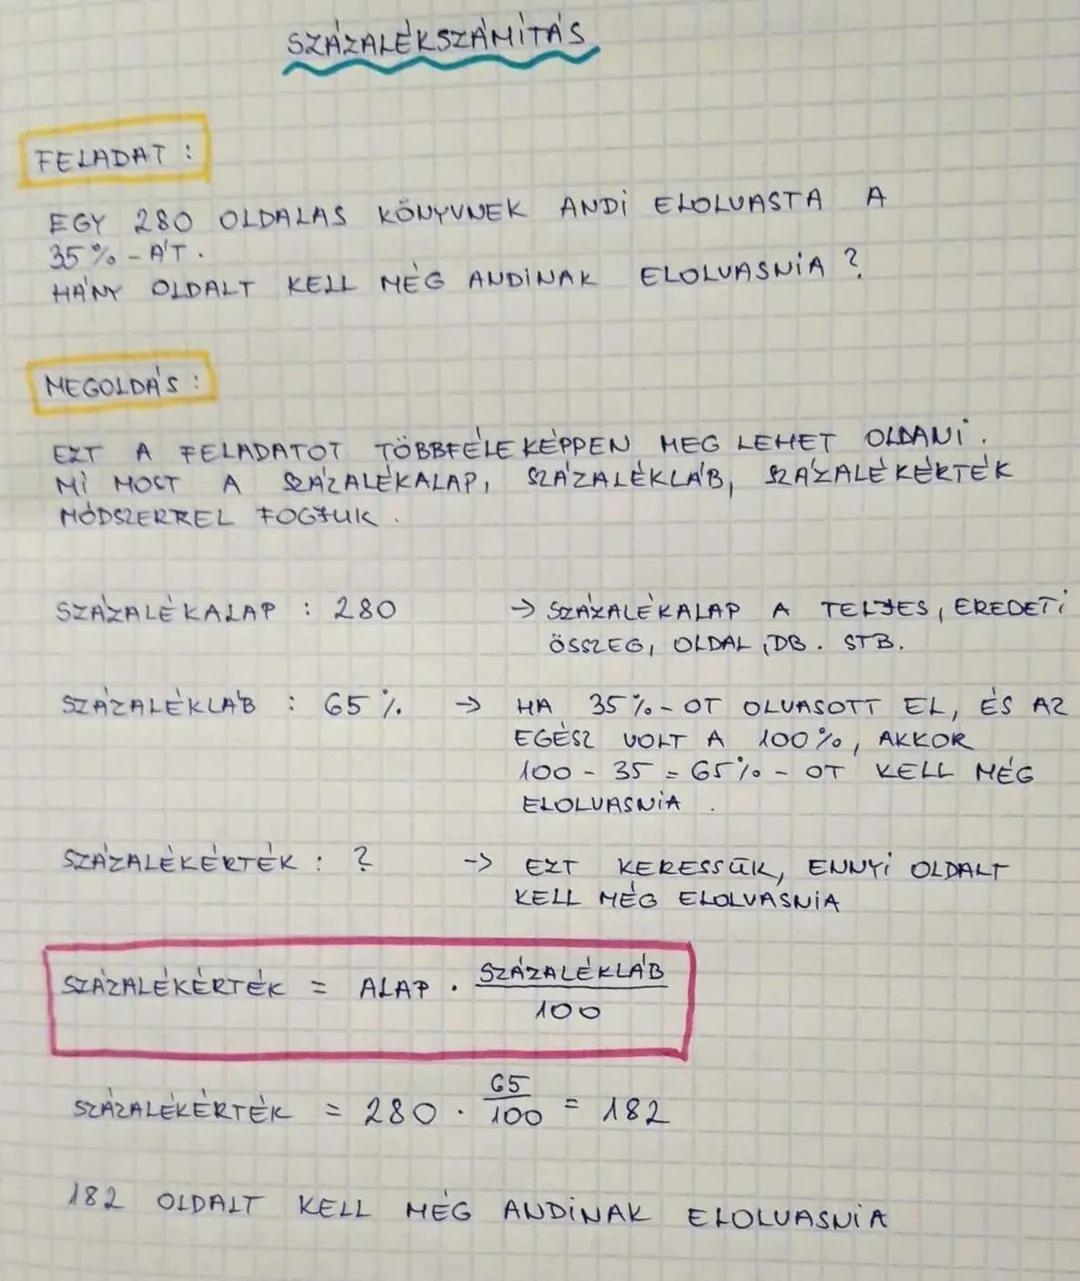 SZÁZALÉKSZÁMÍTÁS
FELADAT :
EGY 280 OLDALAS KÖNYVNEK ANDI ELOLVASTA A
35% - ÁT .
HÁNY OLDALT KELL MÉG ANDINAK ELOLVASNIA ?
MEGOLDÁS :
EZT A FELADATOT TÖBBFÉLEKÉPPEN MEG LEHET OLDANI .
MI MOST A SZÁZALÉKALAP, SZÁZALÉKLÁB, SZÁZALÉKÉRTÉK
MÓDSZERREL FOGJUK .
SZÁZALÉKALAP : 280 → SZÁZALÉKALAP A TELJES, EREDETI
ÖSSZEG, OLDAL, DB. STB.
SZÁZALÉKLÁB : 65% → HA 35% - OT OLVASOTT EL, ÉS AZ
EGÉSZ VOLT A 100%, AKKOR
100 - 35 = 65% - OT KELL MÉG
ELOLVASNIA .
SZÁZALÉKÉRTÉK : ? -> EZT KERESSÜK, ENNYI OLDALT
KELL MÉG ELOLVASNIA
SZÁZALÉKÉRTÉK = ALAP · SZÁZALÉKLÁB
100
SZÁZALÉKÉRTÉK = 280 · 65/100 = 182
182 OLDALT KELL MÉG ANDINAK ELOLVASNIA